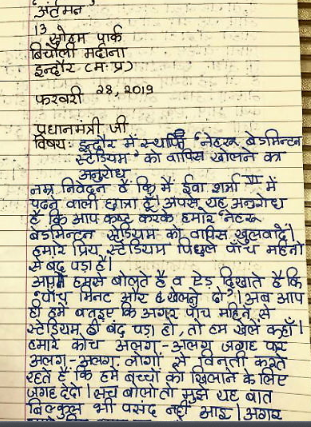 अंतर्मन
13 सोहम पार्क
बिचौली मर्दाना
इन्दौर (म.प्र)
फरवरी 28, 2019
प्रधानमंत्री जी
विषय: इन्दौर में स्थापित "नेहरू बेडमिन्टन
स्टेडियम" को वापिस खोलने का
अनुरोध
नम्र निवेदन है कि मैं ईवा शर्मा VII में
पढ़ने वाली छात्रा हूँ। आपसे यह अनुरोध
है कि आप कष्ट करके हमारे "नेहरू
बेडमिन्टन स्टेडियम" को वापिस खुलवादें।
हमारे प्रिय स्टेडियम पिछले पाँच महीनो
से बंद पड़ा है।
आपने हमसे बोलते है व ऐड दिखाते है कि
"पाँच मिनट और खेलने दो"। अब आप
ही हमें बताइए कि अगर पाँच महिने से
स्टेडियम ही बंद पड़ा हो, तो हम खेले कहाँ।
हमारे कोच अलग-अलग जगह पर
अलग-अलग लोगों से विनती करते
रहते हैं कि हमें बच्चों को खिलाने के लिए
जगह दे दो। सच बोलो तो मुझे यह बात
बिल्कुल भी पसंद नहीं आई। अगर